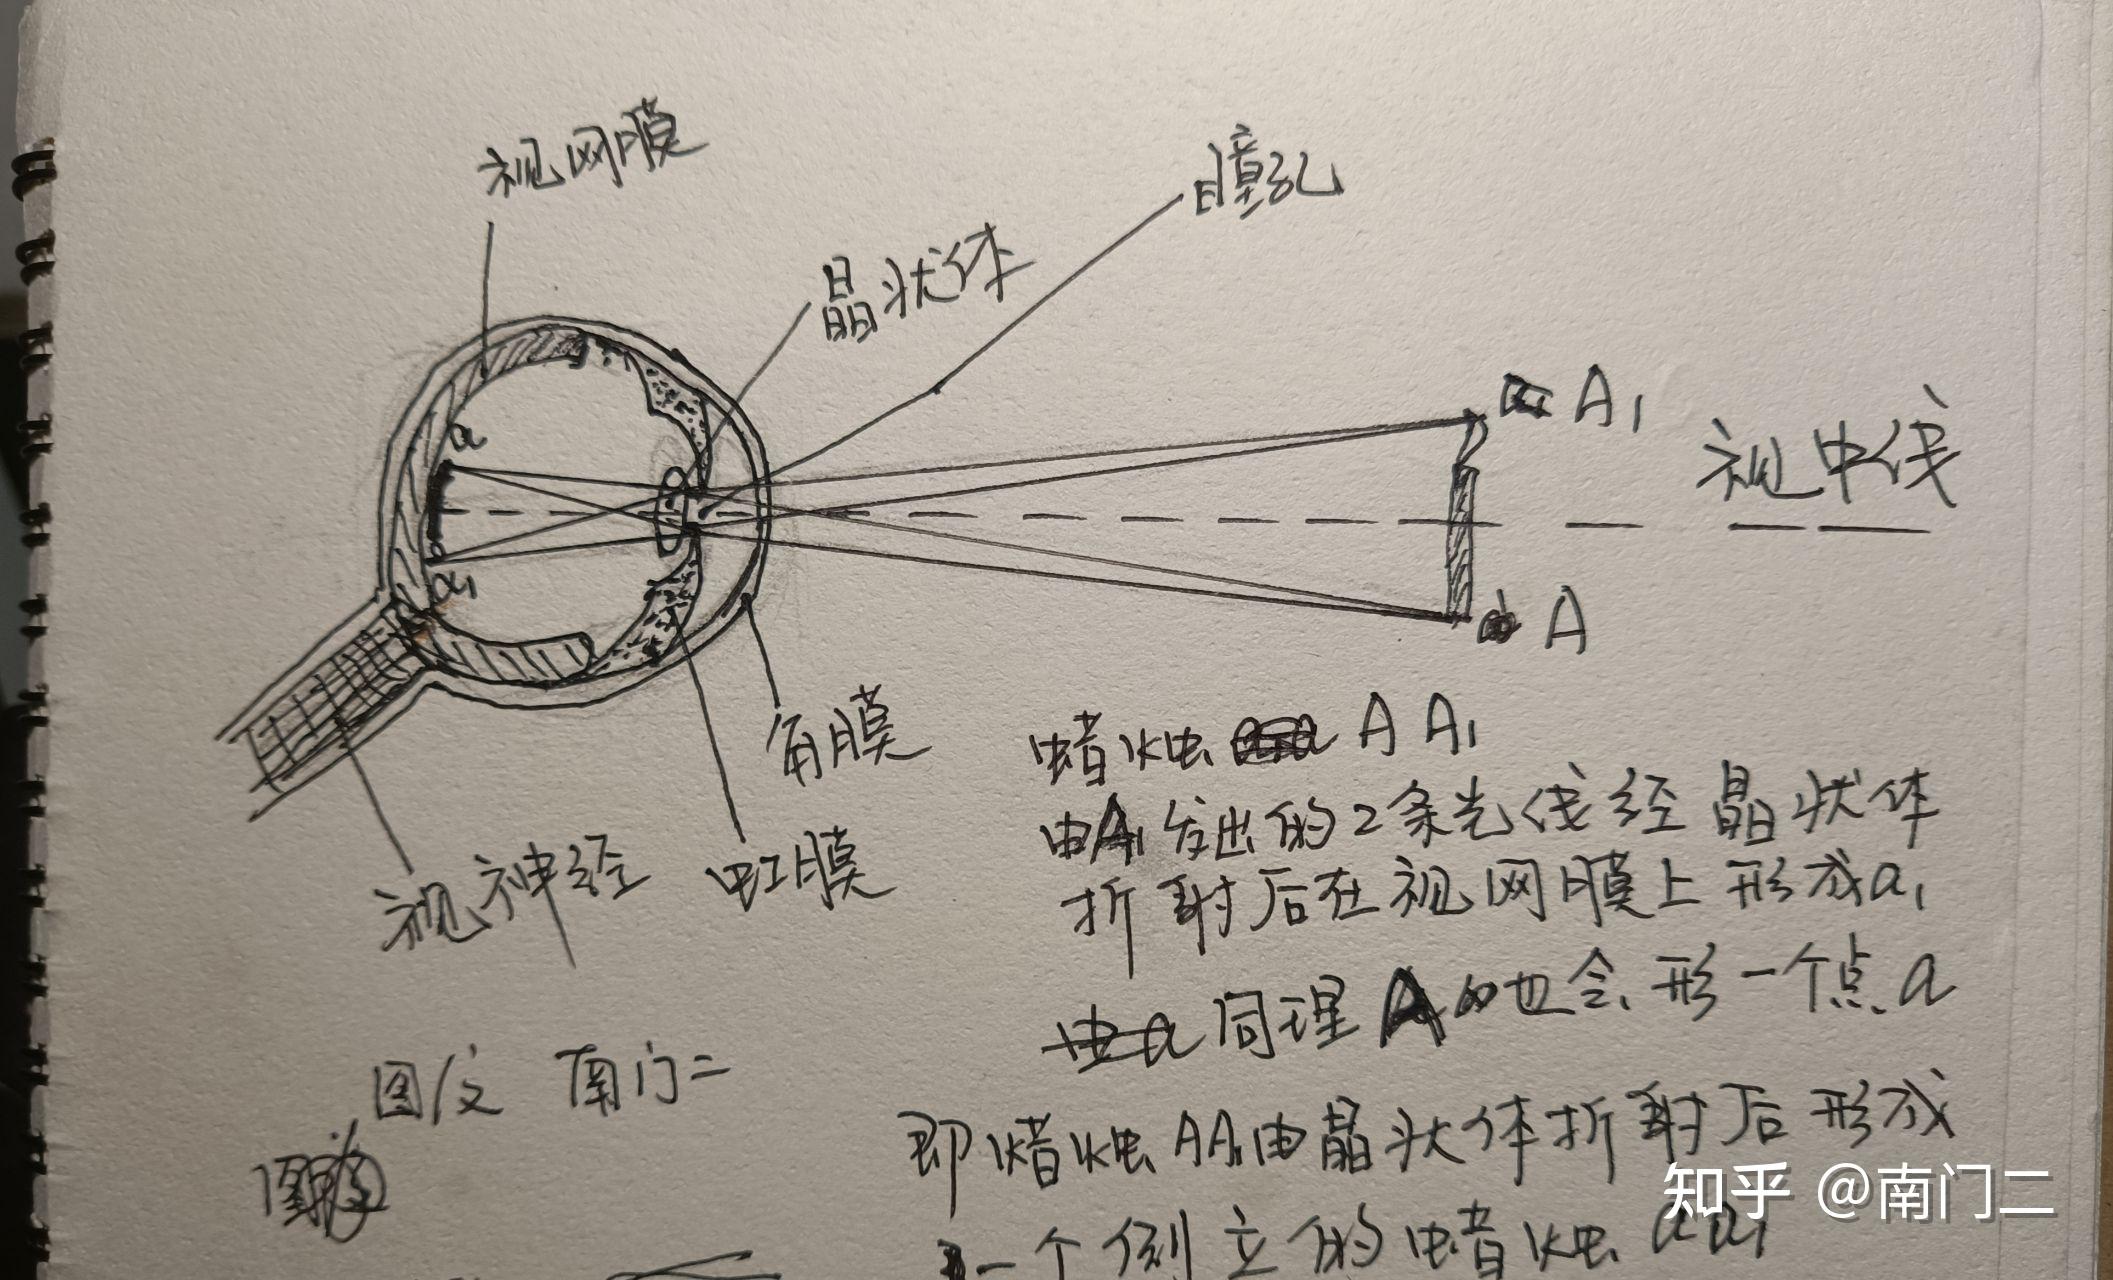 视网膜
瞳孔
晶状体
A₁
视中线
a
a₁
A
角膜
虹膜
视神经
蜡烛 A A₁
由A₁发出的2条光线经晶状体
折射后在视网膜上形成a₁
同理A也会形一个点a
图/文 南门二
即蜡烛AA₁由晶状体折射后形成
一个倒立的蜡烛aa₁
知乎 @南门二